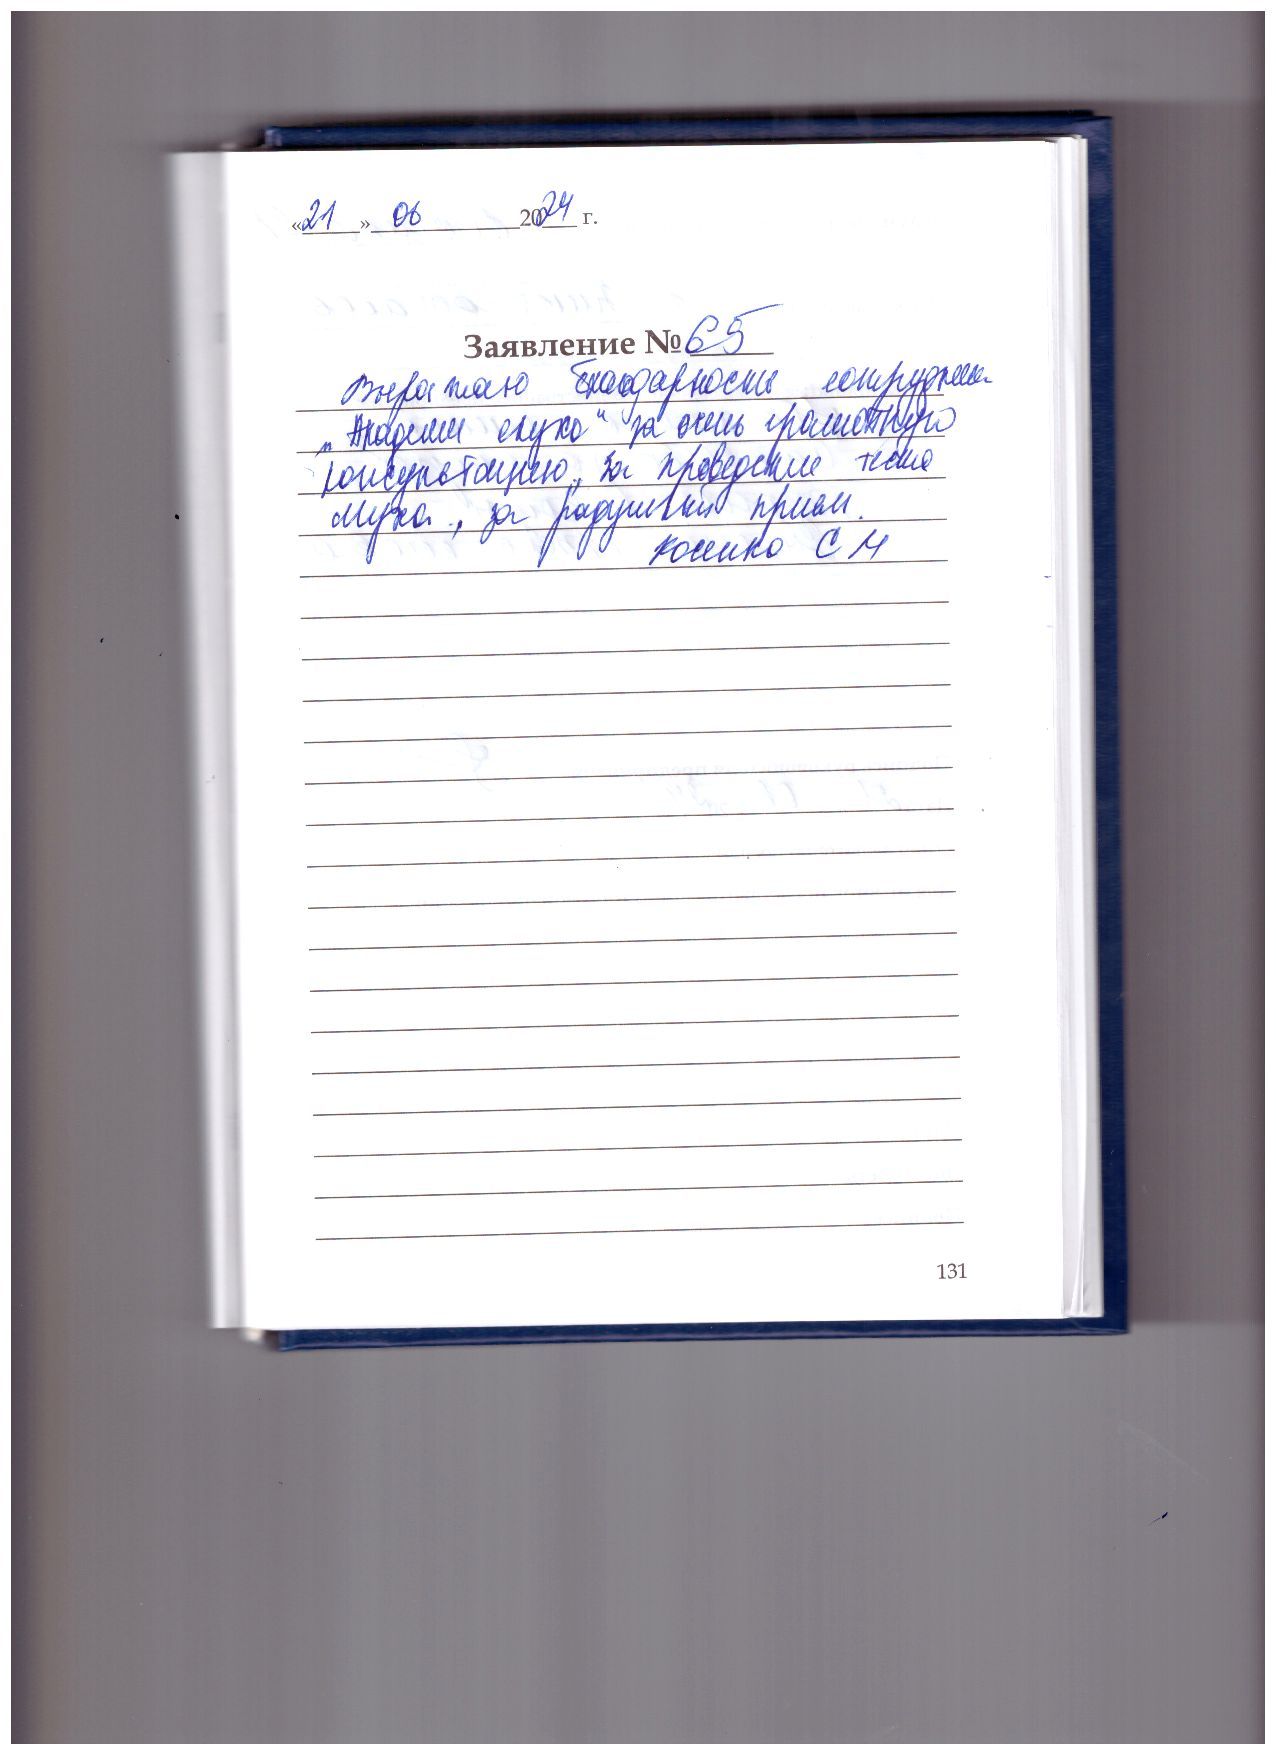 «21» 06 2024 г.
Заявление № 65
Выражаю благодарность сотрудникам
„Академии слуха" за очень грамотную
консультацию, за проведение теста
слуха, за радушный прием.
С М
131